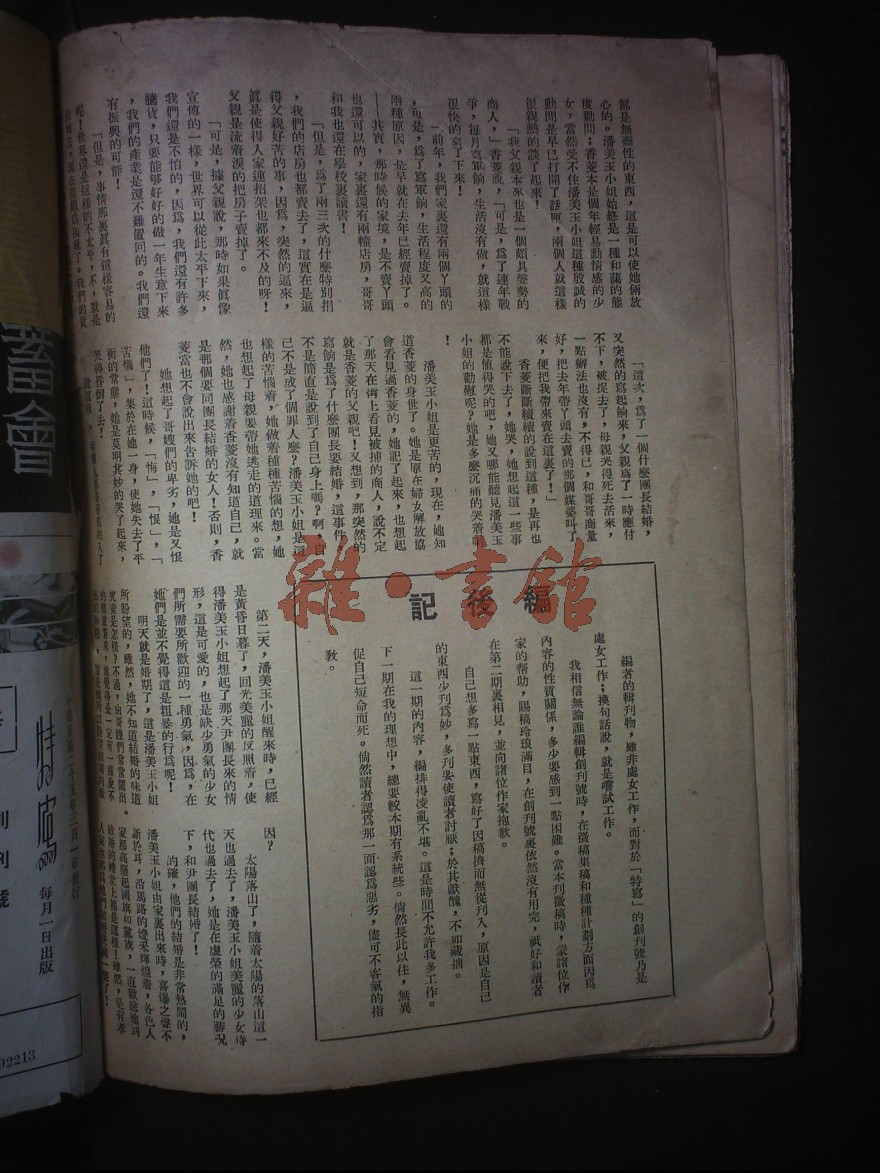 都是無靈性的東西，這是可以使她倆放
心的。潘美玉小姐始終是一種和藹的態
度動問；香菱本是個年輕易動情感的少
女，當然受不住潘美玉小姐這種殷誠的
動問是早已打開了話匣，兩個人就這樣
很親熱的談了起來！
「我父親本來也是一個頗具聲勢的
商人，」香菱說，「可是，爲了連年戰
爭，每月寫軍餉，生活沒有做，就這樣
很快的衰了下來！
「前年，我們家裏還有兩個丫頭的
，可是，爲了寫軍餉，生活程度又高的
兩種原因，是早就在去年已經賣掉了。
——其實，那時候的家境，是不賣丫頭
也還可以的，家裏還有兩幢店房，哥哥
和我也還在學校裏讀書！
「但是，爲了兩三次的什麼特別捐
，我們的店房也都賣去了，這實在是逼
得父親好苦的事，因爲，突然的逼來，
眞是使得人家連招架也都來不及的呀！
父親是流着淚的把房子賣掉了。
「可是，據父親說，那時如果眞像
宣傳的一樣，世界可以從此太平下來，
我們還是不怕的，因爲，我們還有許多
賸貨，只要能够好好的做一年生意下來
，我們的產業是還不難置回的。我們還
有振興的可能！
「但是，事情那裏眞有這樣容易的
呢！世界還是這樣的不太平，不，就是
「這次，爲了一個什麼團長結婚，
又突然的寫起餉來，父親爲了一時應付
不下，被捉去了，母親哭得死去活來，
一點辦法也沒有，不得已，和哥哥商量
好，把去年帶丫頭去賣的那個媒婆叫了
來，便把我帶來賣在這裏了！」
香菱斷斷續續的說到這種，是再也
不能說下去了，她哭，她想起這一些事
都是値得哭的吧，她又哪能聽見潘美玉
小姐的勸慰呢？她是多麼沉痛的哭着
！
潘美玉小姐是更苦的，現在，她知
道香菱的身世了。她是原在婦女解放協
會看見過香菱的，她記了起來，也想起
了那天在街上看見被捕的商人，說不定
就是香菱的父親吧！又想到，那突然的
寫餉是爲了什麼團長要結婚，這事件，
不是簡直是說到了自己身上嗎？啊，自
己不是成了個罪人麼？潘美玉小姐是這
樣的苦惱着，她做着種種苦惱的想，她
也想起了母親要帶她逃走的道理來。當
然，她也感謝着香菱沒有知道自己，就
是哪個要同團長結婚的女人！否則，香
菱當也不會說出來告訴她的吧！
她想起了哥嫂們的卑劣，她是又恨
他們了！這時候，「悔」，「恨」，「
苦惱」，集於在她一身，使她失去了平
衡的常態，她是莫明其妙的哭了起來，
哭得昏倒了去！
編後記
編者的輯刊物，雖非處女工作，而對於「特寫」的創刊號乃是
處女工作；換句話說，就是嘗試工作。
我相信無論誰編輯創刊號時，在徵稿集稿和種種計劃方面因爲
內容的性質關係，多少要感到一點困難。當本刊徵稿時，蒙諸位作
家的帮助，賜稿玲瑯滿目，在創刊號裏依然沒有用完，祇好和讀者
在第二期裏相見，並向諸位作家抱歉。
自己想多寫一點東西，寫好了因稿擠而無從列入，原因是自己
的東西少刊爲妙，多刊要使讀者討厭；於其獻醜，不如藏拙。
這一期的內容，編排得凌亂不堪。這是時間不允許我多工作。
下一期在我的理想中，總要較本期有系統些。倘然長此以往，無異
促自己短命而死。倘然讀者認爲那一面認爲惡劣，儘可不客氣的指
敎。
第二天，潘美玉小姐醒來時，已經
是黃昏日暮了，回光美麗的反照着，使
得潘美玉小姐想起了那天尹團長來的情
形，這是可愛的，也是缺少勇氣的少女
們所需要所歡迎的一種勇氣，因爲，在
她們是並不覺得這是粗暴的行爲呢！
明天就是婚期了，這是潘美玉小姐
所盼望的，雖然，她不知道結婚的味道
究竟是怎樣？不過，由哥嫂們常常鬧出
因？
太陽落山了，隨着太陽的落山這一
天也過去了，潘美玉小姐美麗的少女時
代也過去了，她是在虛榮的滿足的勝況
下，和尹團長結婚了！
的確，他們的結婚是非常熱鬧的，
潘美玉小姐由家裏出來時，喜爆之聲不
斷於耳，沿馬路的燈采輝煌着，各色人
家都高懸起國旗和黨旗，一直歡送她到
雜·書館
蓄會
特寫
創刊號
每月一日出版
92213